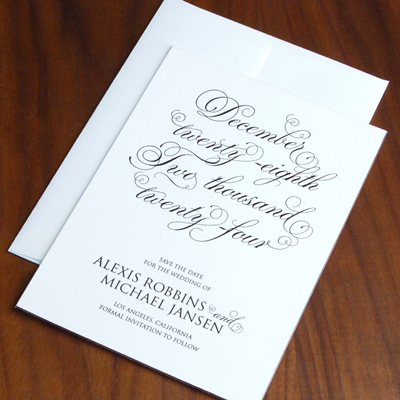 December
twenty-eighth
Two thousand
twenty-four
SAVE THE DATE
FOR THE WEDDING OF
ALEXIS ROBBINS and
MICHAEL JANSEN
LOS ANGELES, CALIFORNIA
FORMAL INVITATION TO FOLLOW